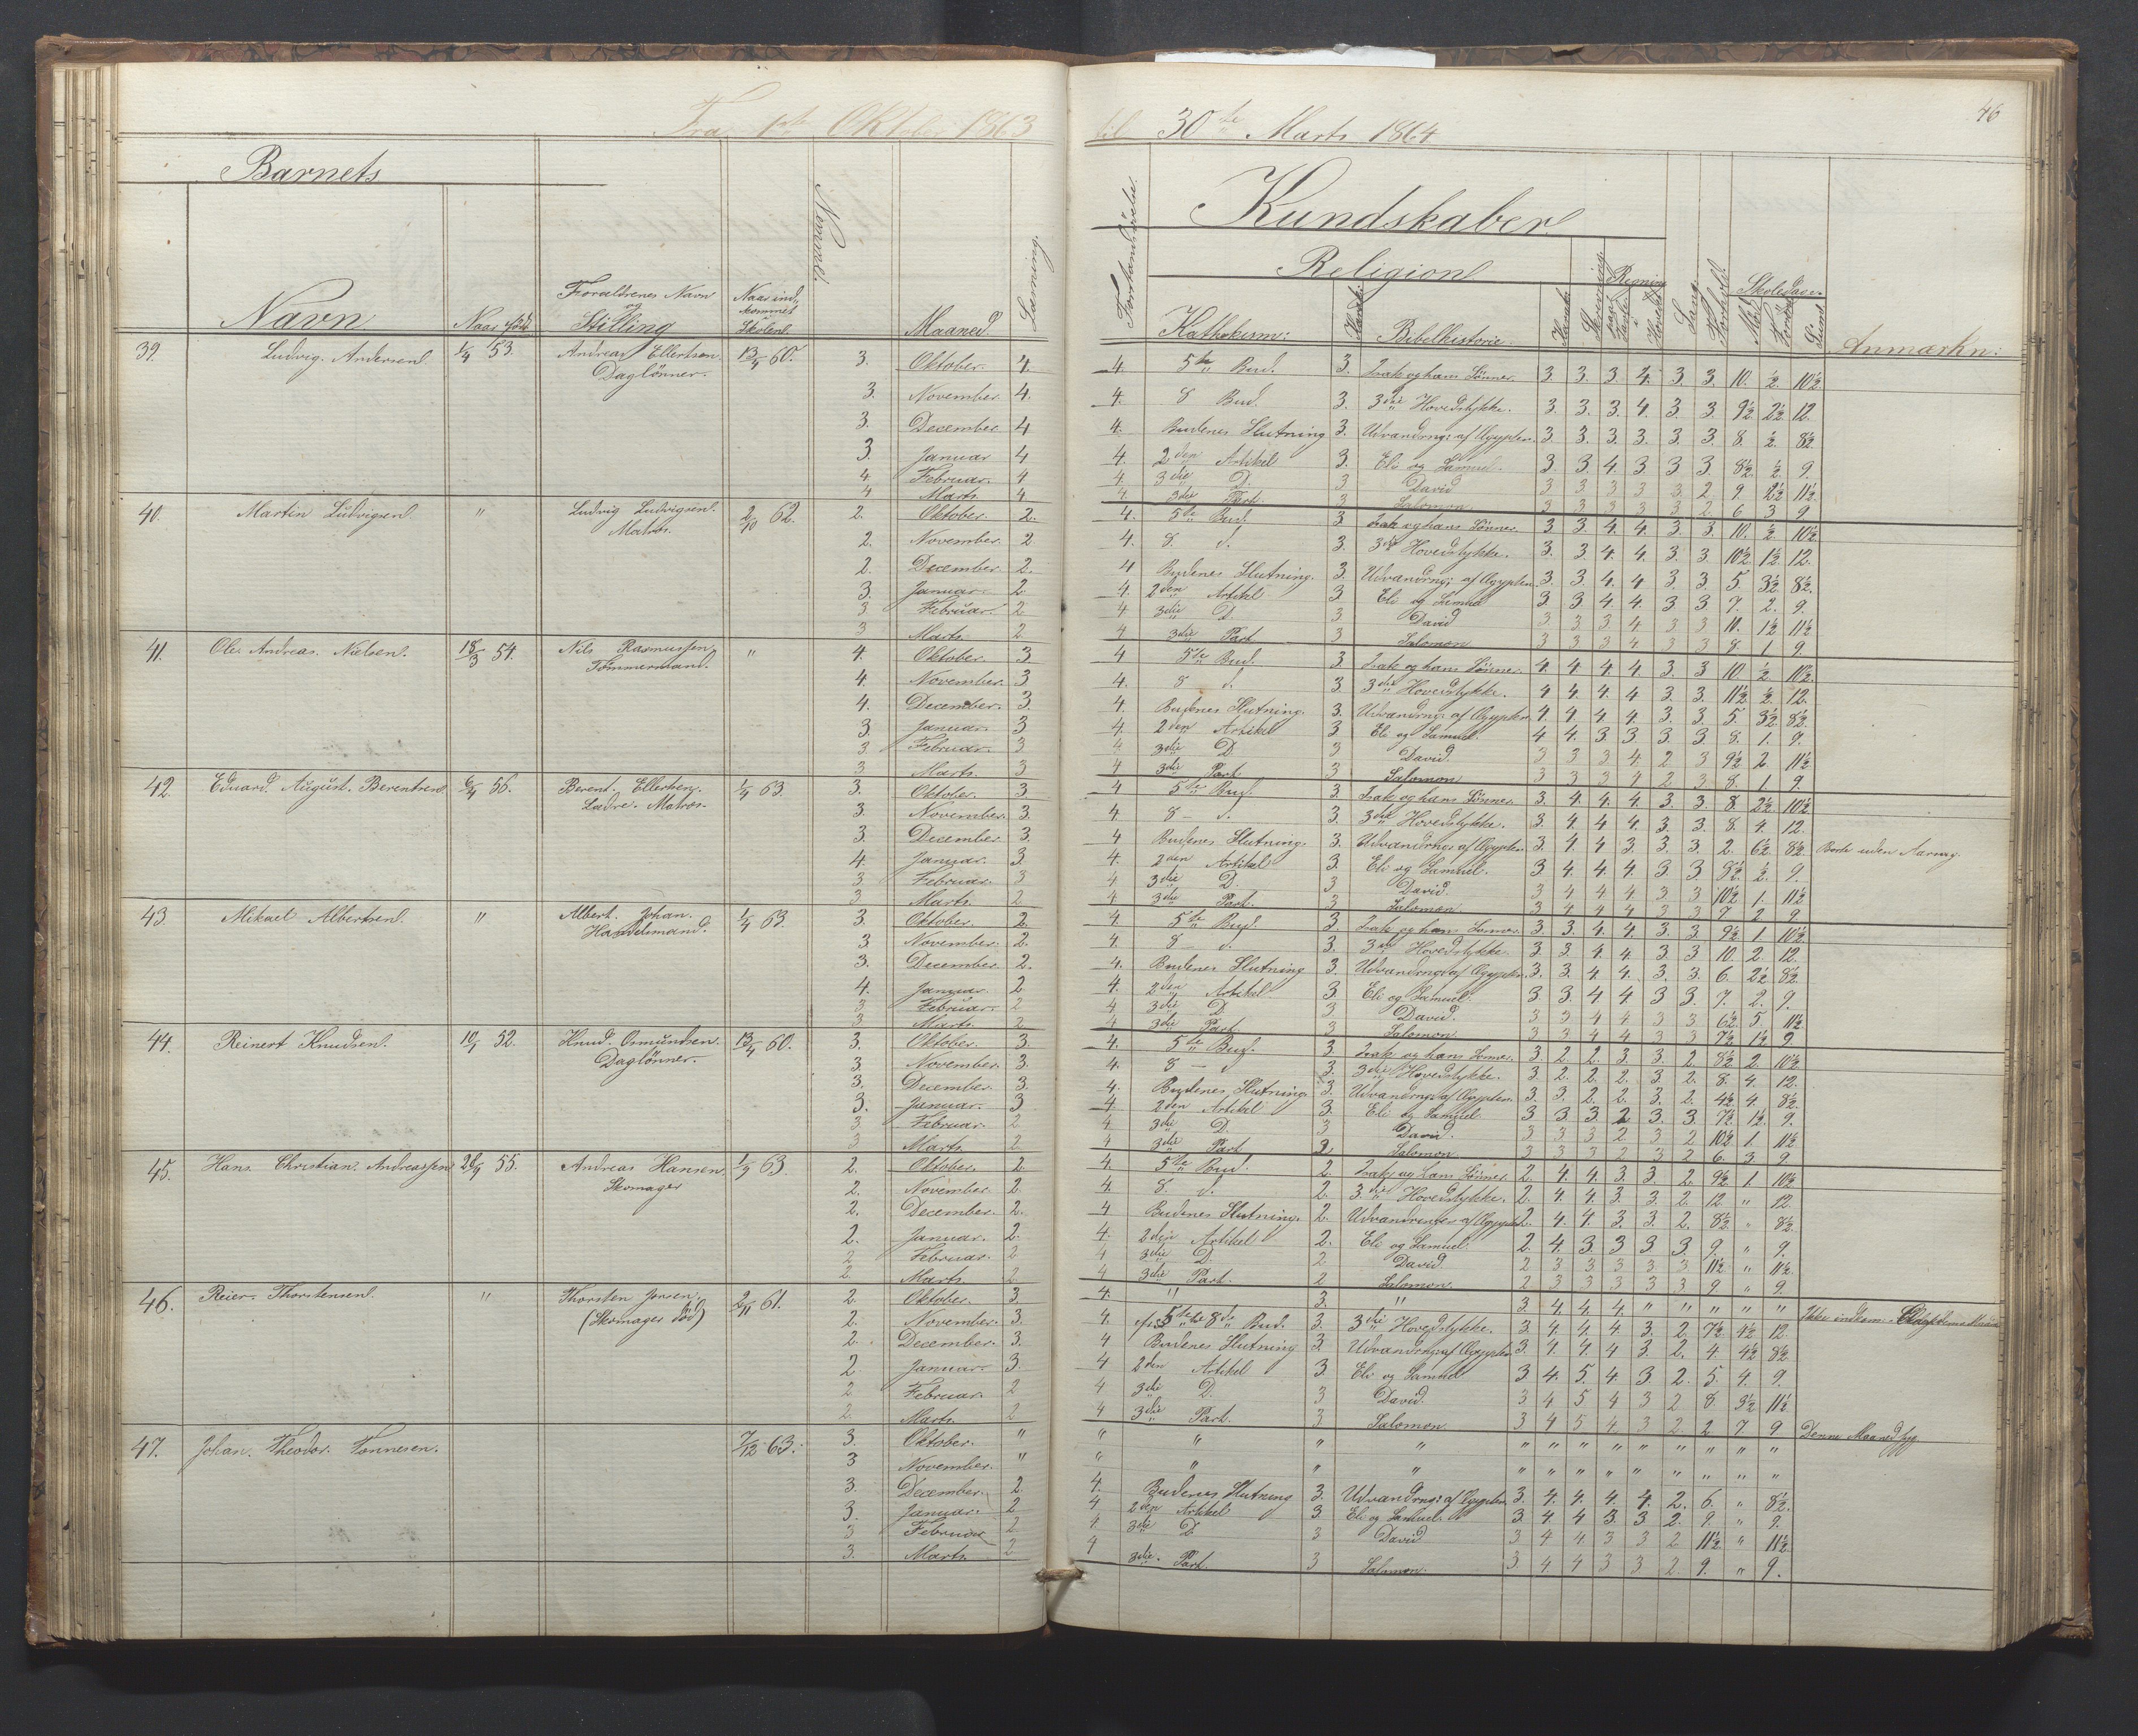 Fra 1ste Oktober 1863
til 30te Marts 1864.
46
Barnets
Navn
Naar født
Forældrenes Navn og Stilling
Naar indkommet Skolen
Nummer
Maaned
Læsning.
Kundskaber
Religion
Kathekism:
Karakt.
Bibelhistorie.
Karakt.
Skrivning
Regning
Sang
Forhold
Skoledage.
Anmærkn:
39. Ludvig Andersen 1/4 53. Andreas Ellertsen. 13/4 60. 3. Oktober. 4. 4. 5te Bud. 3. Isak og hans Sønner. 3 3. 3. 4. 3. 3. 10. ½. 10½
Daglønner. 3. November. 4. 4. 8 Bud. 3. 3die Hovedstykke. 3. 3. 3. 4. 3. 3. 9½ 2½ 12.
3. December 4 4. Budenes Slutning 3. Udvandrng: af Ægypten. 3. 3. 3. 3. 3. 3. 8. ½. 8½.
3. Januar 4 4. 2den Artikel 3. Eli og Samuel. 3. 3. 4. 3 3 3 8½ ½ 9.
4. Februar. 4 4. 3die D. 3 David 3 3 3 3 3 2 9. 2½ 11½.
4 Marts. 4 4. 3die Part. 3 Salomon 3 3 3 3 3. 2. 6 3 9
40. Martin Ludvigsen " Ludvig Ludvigsen. 2/10 62. 2. Oktober. 2. 4. 5te Bud. 3. Isak og hans Sønner. 3 3 4 4. 3. 3. 10. ½ 10½
Matros. 2. November. 2 4. 8. d. 3. 3die Hovedstykke. 3. 3 4. 4. 3. 3 10½ 1½ 12.
2. December. 2. 4 Budenes Slutning. 3. Udvandrng: af Ægypten. 3. 3. 4. 4 3. 3. 5. 3½ 8½.
3. Januar. 2 4. 2den Artikel 3. Eli og Samuel 3. 3 4. 4. 3 3 7. 2. 9.
3. Februar. 2 4 3die D. 3. David 3 3. 3 4 3 3 10. 1½ 11½
3 Marts. 2 4 3die Part 3 Salomon 3 3 3 4 3 3 8. 1 9.
41. Ole Andreas Nielsen. 18/3 54. Nils Rasmussen, " 4. Oktober. 3 4 5te Bud. 3 Isak og hans Sønner. 4. 4. 4. 4. 3. 3 10 ½ 10½.
Tømmermand. 4. November. 3 4. 8 d. 3. 3die Hovedstykke. 4 4. 4. 4 3. 3. 11½ ½ 12.
4. December. 3. 4. Budenes Slutning. 3. Udvandrng: af Ægypten. 4. 4. 4. 4. 3. 3. 5. 3½ 8½.
3. Januar 3 4. 2den Artikel 3. Eli og Samuel. 4 4. 3. 3. 3. 3. 8. 1. 9.
3 Februar. 3 4 3die D. 3 David. 3 3 3 4 2 3 9½ 2 11½
3 Marts. 3 4 3die Part 3 Salomon 3 3 3 4 2 3 8. 1 9.
42. Eduard August Berentsen 6/4 56. Berent Ellertsen. 1/4 63. 3. Oktober. 3 4 5te Bud. 3. Isak og hans Sønner. 3. 4. 4. 4. 3. 3 8. 2½ 10½
Ledre. Matros. 3. November. 3. 4. 8 - d. 3 3die Hovedstykke. 3 4. 4 4. 3. 3. 8. 4. 12.
3. December 3. 4 Budenes Slutning. 3. Udvandrng: af Ægypten 3. 4. 4 3 3. 3. 2. 6½ 8½ Borte uden Aarsag.
4. Januar. 3. 4. 2den Artikel 3. Eli og Samuel. 3. 4. 4. 4. 3 3. 8½. ½. 9.
3. Februar. 3 4 3die D. 3 David. 3 4 4 4 3 3 10½ 1. 11½
3 Marts. 2 4 3die Part. 3 Salomon. 3 4 4 4 3 3 7 2 9.
43. Mikael Albertsen. " Albert Johan. 1/4 63. 3. Oktober. 2. 4. 5te Bud. 3. Isak og hans Sønner. 3. 3. 4. 4. 3. 3. 9½ 1. 10½.
Handelsmand. 3 November. 2. 4. 8 - d. 3. 3die Hovedstykke. 3. 3. 4. 4. 3. 3 10 2. 12.
3. December. 2. 4. Budenes Slutning 3. Udvandrng: af Ægypten. 3. 3. 4 4. 3. 3 6. 2½ 8½.
4. Januar. 2 4. 2den Artikel 3. Eli og Samuel. 3 3. 4. 4 3 3. 7. 2. 9.
3 Februar. 2 4 3die D. 3 David. 3 3 4 4 3 3. 6½ 5. 11½
3 Marts. 2 4 3die Part. 3 Salomon 3 3 4 4 3 3 7½ 1½ 9
44. Reinert Knudsen. 10/1 52. Knud Osmundsen. 13/4 60. 3. Oktober. 3 4. 5te Bud. 3. Isak og hans Sønner. 3. 2. 2. 3 3. 2. 8½ 2. 10½
Daglønner. 3. November. 3. 4. 8 - d 3. 3die Hovedstykke. 3 2. 2. 2. 3 2. 8. 4. 12.
3. December. 3. 4. Budenes Slutning. 3. Udvandrng: af Ægypten. 3 3. 2. 2. 3. 2. 4½ 4. 8½
3. Januar. 3 4. 2den Artikel 3. Eli og Samuel 3 3. 3 2 3. 3. 7½ 1½ 9.
3 Februar. 2 4 3die D. 3 David. 3 3 3 2 3 2 10½ 1. 11½
3 Marts. 2 4 3die Part 2 Salomon. 3 3 3 2 3 2 6. 3 9
45. Hans Christian Andreassen 26/9 55. Andreas Hansen, 1/4 63. 2. Oktober. 2. 4. 5te Bud. 2. Isak og hans Sønner. 2. 4. 4. 3 3. 2. 9½ 1. 10½
Skomager 2. November. 2. 4. 8. d. 2. 3die Hovedstykke. 2. 4. 4. 3. 3. 2. 12 " 12.
2. December. 2. 4 Budenes Slutning. 2. Udvandrng: af Ægypten 2. 4. 4. 3. 3. 2. 8½ " 8½.
2. Januar. 2. 4. 2den Artikel 2. Eli og Samuel. 2. 4. 3. 3 3. 3. 9. " 9.
2 Februar. 2 4 3die D. 2 David 2 3 3 3 3 3 11½ " 11½
2. Marts. 2. 4 3die Part. 2 Salomon. 2 3 3 3 3 3 9 " 9.
46. Reier Thorstensen. " Thorsten Jonsen, 2/11 61. 2. Oktober. 3. 4. " 3. " 3 4. 4. 4. " " " " " Ikke indkom.
(Skomager død) 2. November. 3. 4. 5te 8de Bud. 3. 3die Hovedstykke. 3. 4. 4. 4 3. 2. 7½. 4½ 12
2. December. 3. 4 Budenes Slutning 3. Udvandrng: af Ægypten 3. 4. 4. 4 3. 2. 4. 4½ 8½
2 Januar. 3. 4 2den Artikel 3. Eli og Samuel 3 4. 5. 4. 3 2. 5. 4. 9.
2 Februar. 2 4 3die D. 3 David. 3 4 5 4 3 2 8. 3½ 11½
2. Marts. 2 4 3die Part. 3 Salomon 3 4 5 4 3 2. 2 7 9 Denne Maaned syg.
47. Johan Theodor Tonnesen. 7/12 63. 3. Oktober. " " " " " " " " " " " " " "
3 November. " " " " " " " " " " " " " "
3. December. 2 4. Budenes Slutning 3. Udvandrng: af Ægypten. 3. 4. 4. 4. 4. 2. 6. " 8½.
3. Januar. 2 4 2den Artikel 3. Eli og Samuel. 3. 4. 4 3. 3. 2. 9. " 9.
3 Februar 2 4 3die D. 3 David 3 4 4 3 3 2 11½ " 11½
3. Marts. 2 4 3die Part. 3 Salomon. 3 4 4 3 3 2. 9. " 9.